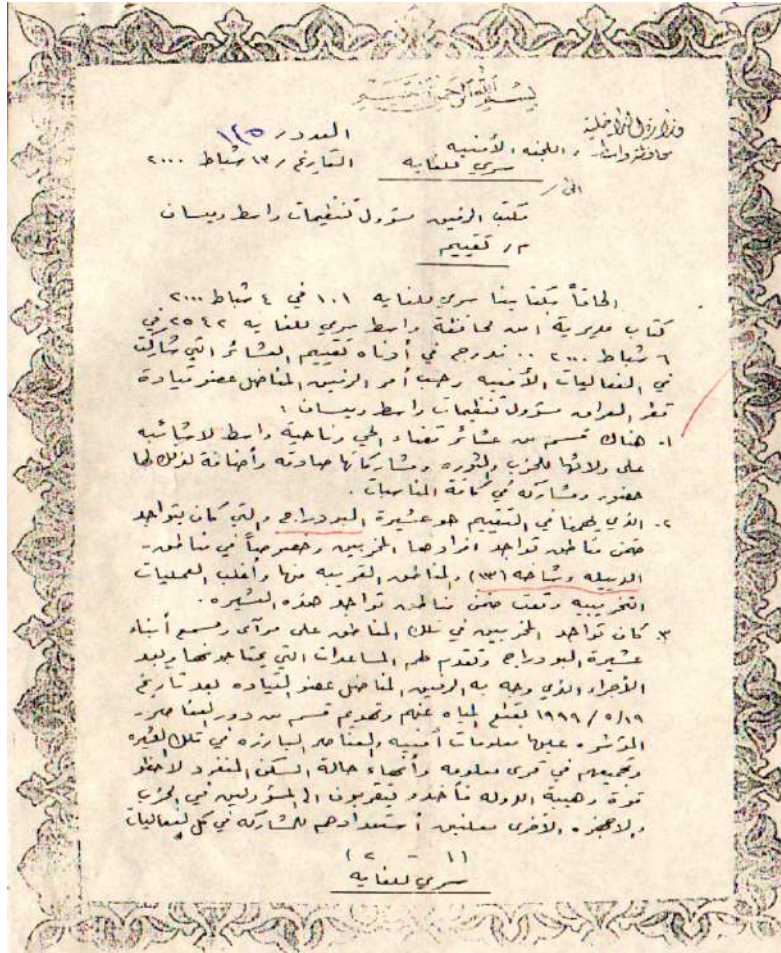 بسم الله الرحمن الرحيم
وزارة الداخلية
محافظة واسط / اللجنة الأمنيه
العدد / ١٢٥
سري للغايه
التاريخ / ١٣ شباط ٢٠٠٠
الى /
مكتب الرفيق مسؤول تنظيمات واسط وميسان
م / تقييم
الحاقاً بكتابينا سري للغايه ١٠١ في ٤ شباط ٢٠٠٠
كتاب مديرية امن محافظة واسط سري للغايه ٢٥٤٢ في
٦ شباط ٢٠٠٠ .. ندرج في أدناه تقييم العشائر التي شاركت
في الفعاليات الأمنيه وحسب أمر الرفيق المناضل عضو قيادة
قطر العراق مسؤول تنظيمات واسط وميسان :
١- هناك قسم من عشائر قضاء الحي وناحية واسط لا شائبه
على ولائها للحزب والثوره ومشاركاتها صادقه وأضافة لذلك لها
حضور ومشاركه في كافة المناسبات .
٢- الذي يهمنا في التقييم هو عشيرة البودراج والتي كان يتواجد
ضمن مناطق تواجد افرادها المخربين وخصوصاً في مناطق -
الدبيله وشاخه (١٣) والمناطق القريبه منها وأغلب العمليات
التخريبيه وقعت ضمن مناطق تواجد هذه العشيره .
٣- كان تواجد المخربين في تلك المناطق على مرآى ومسمع أبناء
عشيرة البودراج وتقدم لهم المساعدات التي يحتاجونها وبعد
الأجراء الذي وجه به الرفيق المناضل عضو القياده بعد تاريخ
١٩ / ٥ / ١٩٩٩ لقطع المياه عنهم وتهديم قسم من دور العناصر -
المؤشره عليها معلومات أمنيه والعناصر البارزه في تلك العشيره
وتجميعهم في قرى معلومه وأنهاء حالة السكن المنفرد لاحظو
قوة وهيبة الدوله فأخذو يتقربون الى المسؤولين في الحزب
والاجهزه الأخرى معلنين أستعدادهم للمشاركه في كل الفعاليات
( ١ - ٢ )
سري للغايه